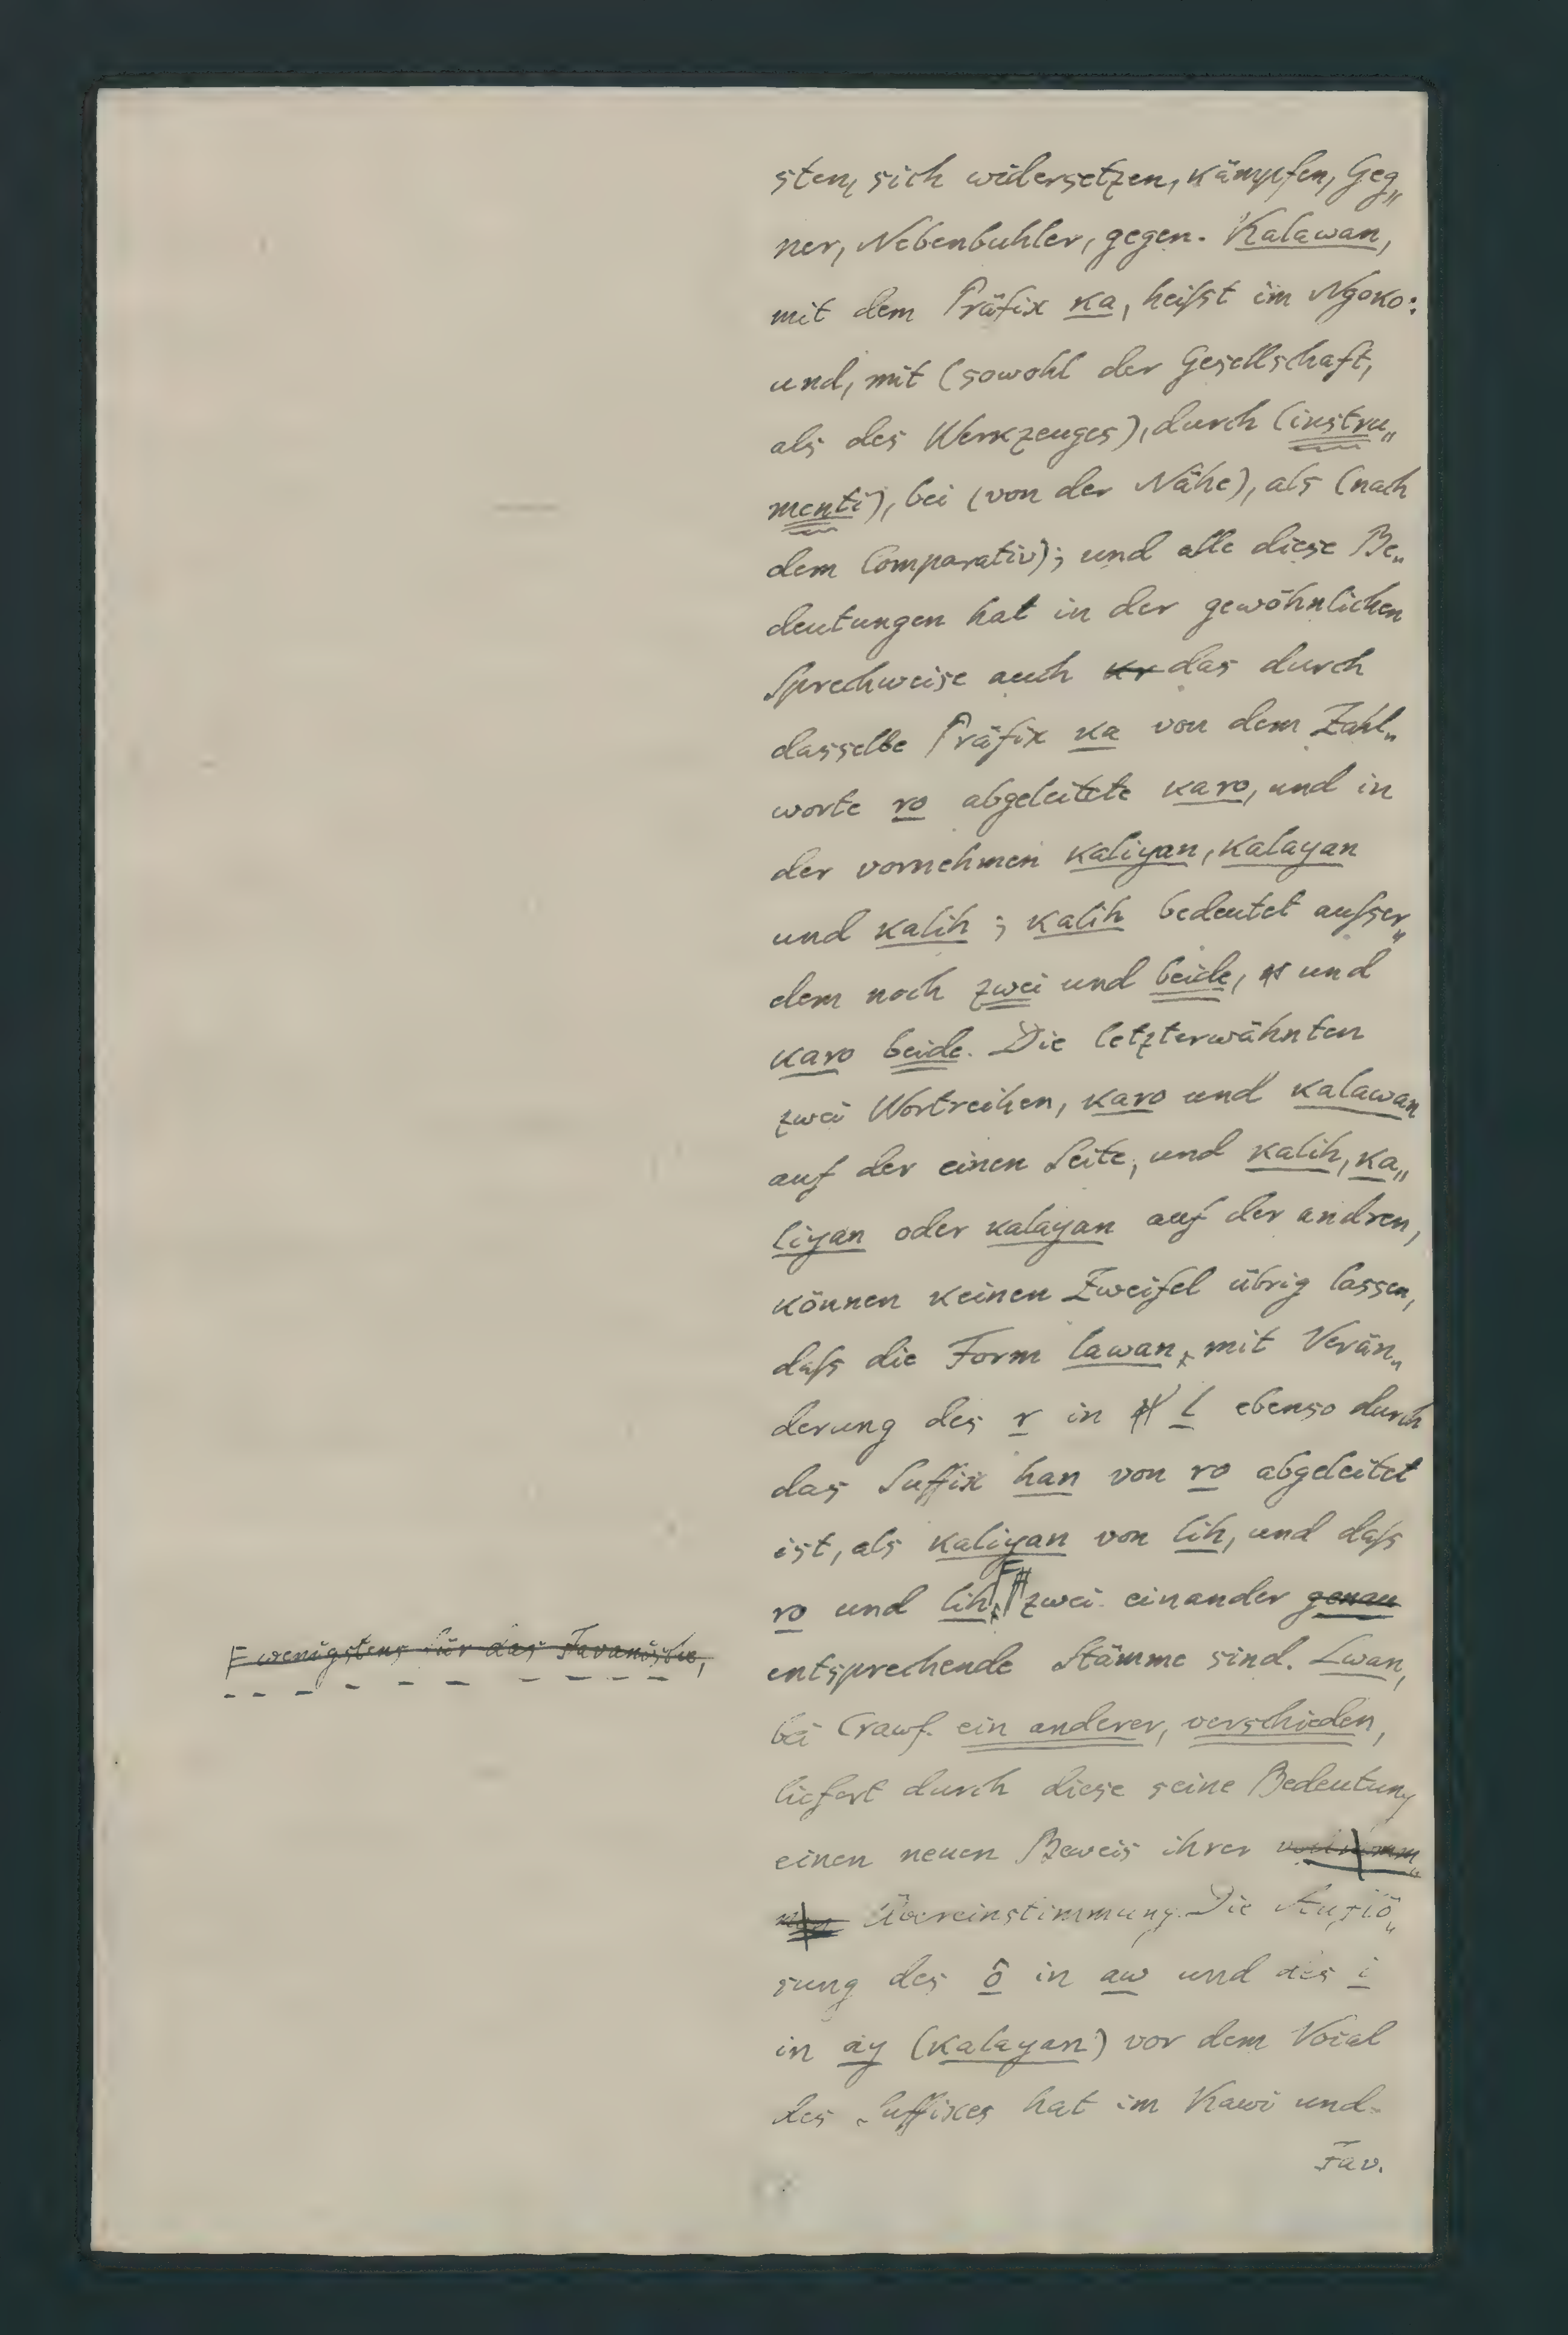 sten, sich widersetzen, kämpfen, Geg„
ner, Nebenbuhler, gegen. Kalawan,
mit dem Präfix ka, heifst im Ngoko:
und, mit (sowohl der Gesellschaft,
als des Werkzeuges), durch (instru„
menti), bei (von der Nähe), als (nach
dem Comparativ); und alle diese Be„
deutungen hat in der gewöhnlichen
Sprechweise auch kr das durch
dasselbe Präfix ka von dem Zahl„
worte ro abgeleitete karo, und in
der vornehmen kaliyan, kalayan
und kalih; kalih bedeutet aufser„
dem noch zwei und beide, und
karo beide. Die letzterwähnten
zwei Wortreihen, karo und kalawan
auf der einen Seite, und kalih, ka„
liyan oder kalayan auf der andren,
können keinen Zweifel übrig lassen,
dafs die Form lawan, mit Verän„
derung des r in l ebenso durch
das Suffix han von ro abgeleitet
ist, als kaliyan von lih, und dafs
ro und lih, zwei einander genau
wenigstens für das Javanische,
entsprechende Stämme sind. Lwan,
bei Crawf. ein anderer, verschieden,
liefert durch diese seine Bedeutung
einen neuen Beweis ihrer
Übereinstimmung. Die Auflö„
sung des ô in aw und des i
in ay (kalayan) vor dem Vocal
des Suffixes hat im Kawi und
Jav.